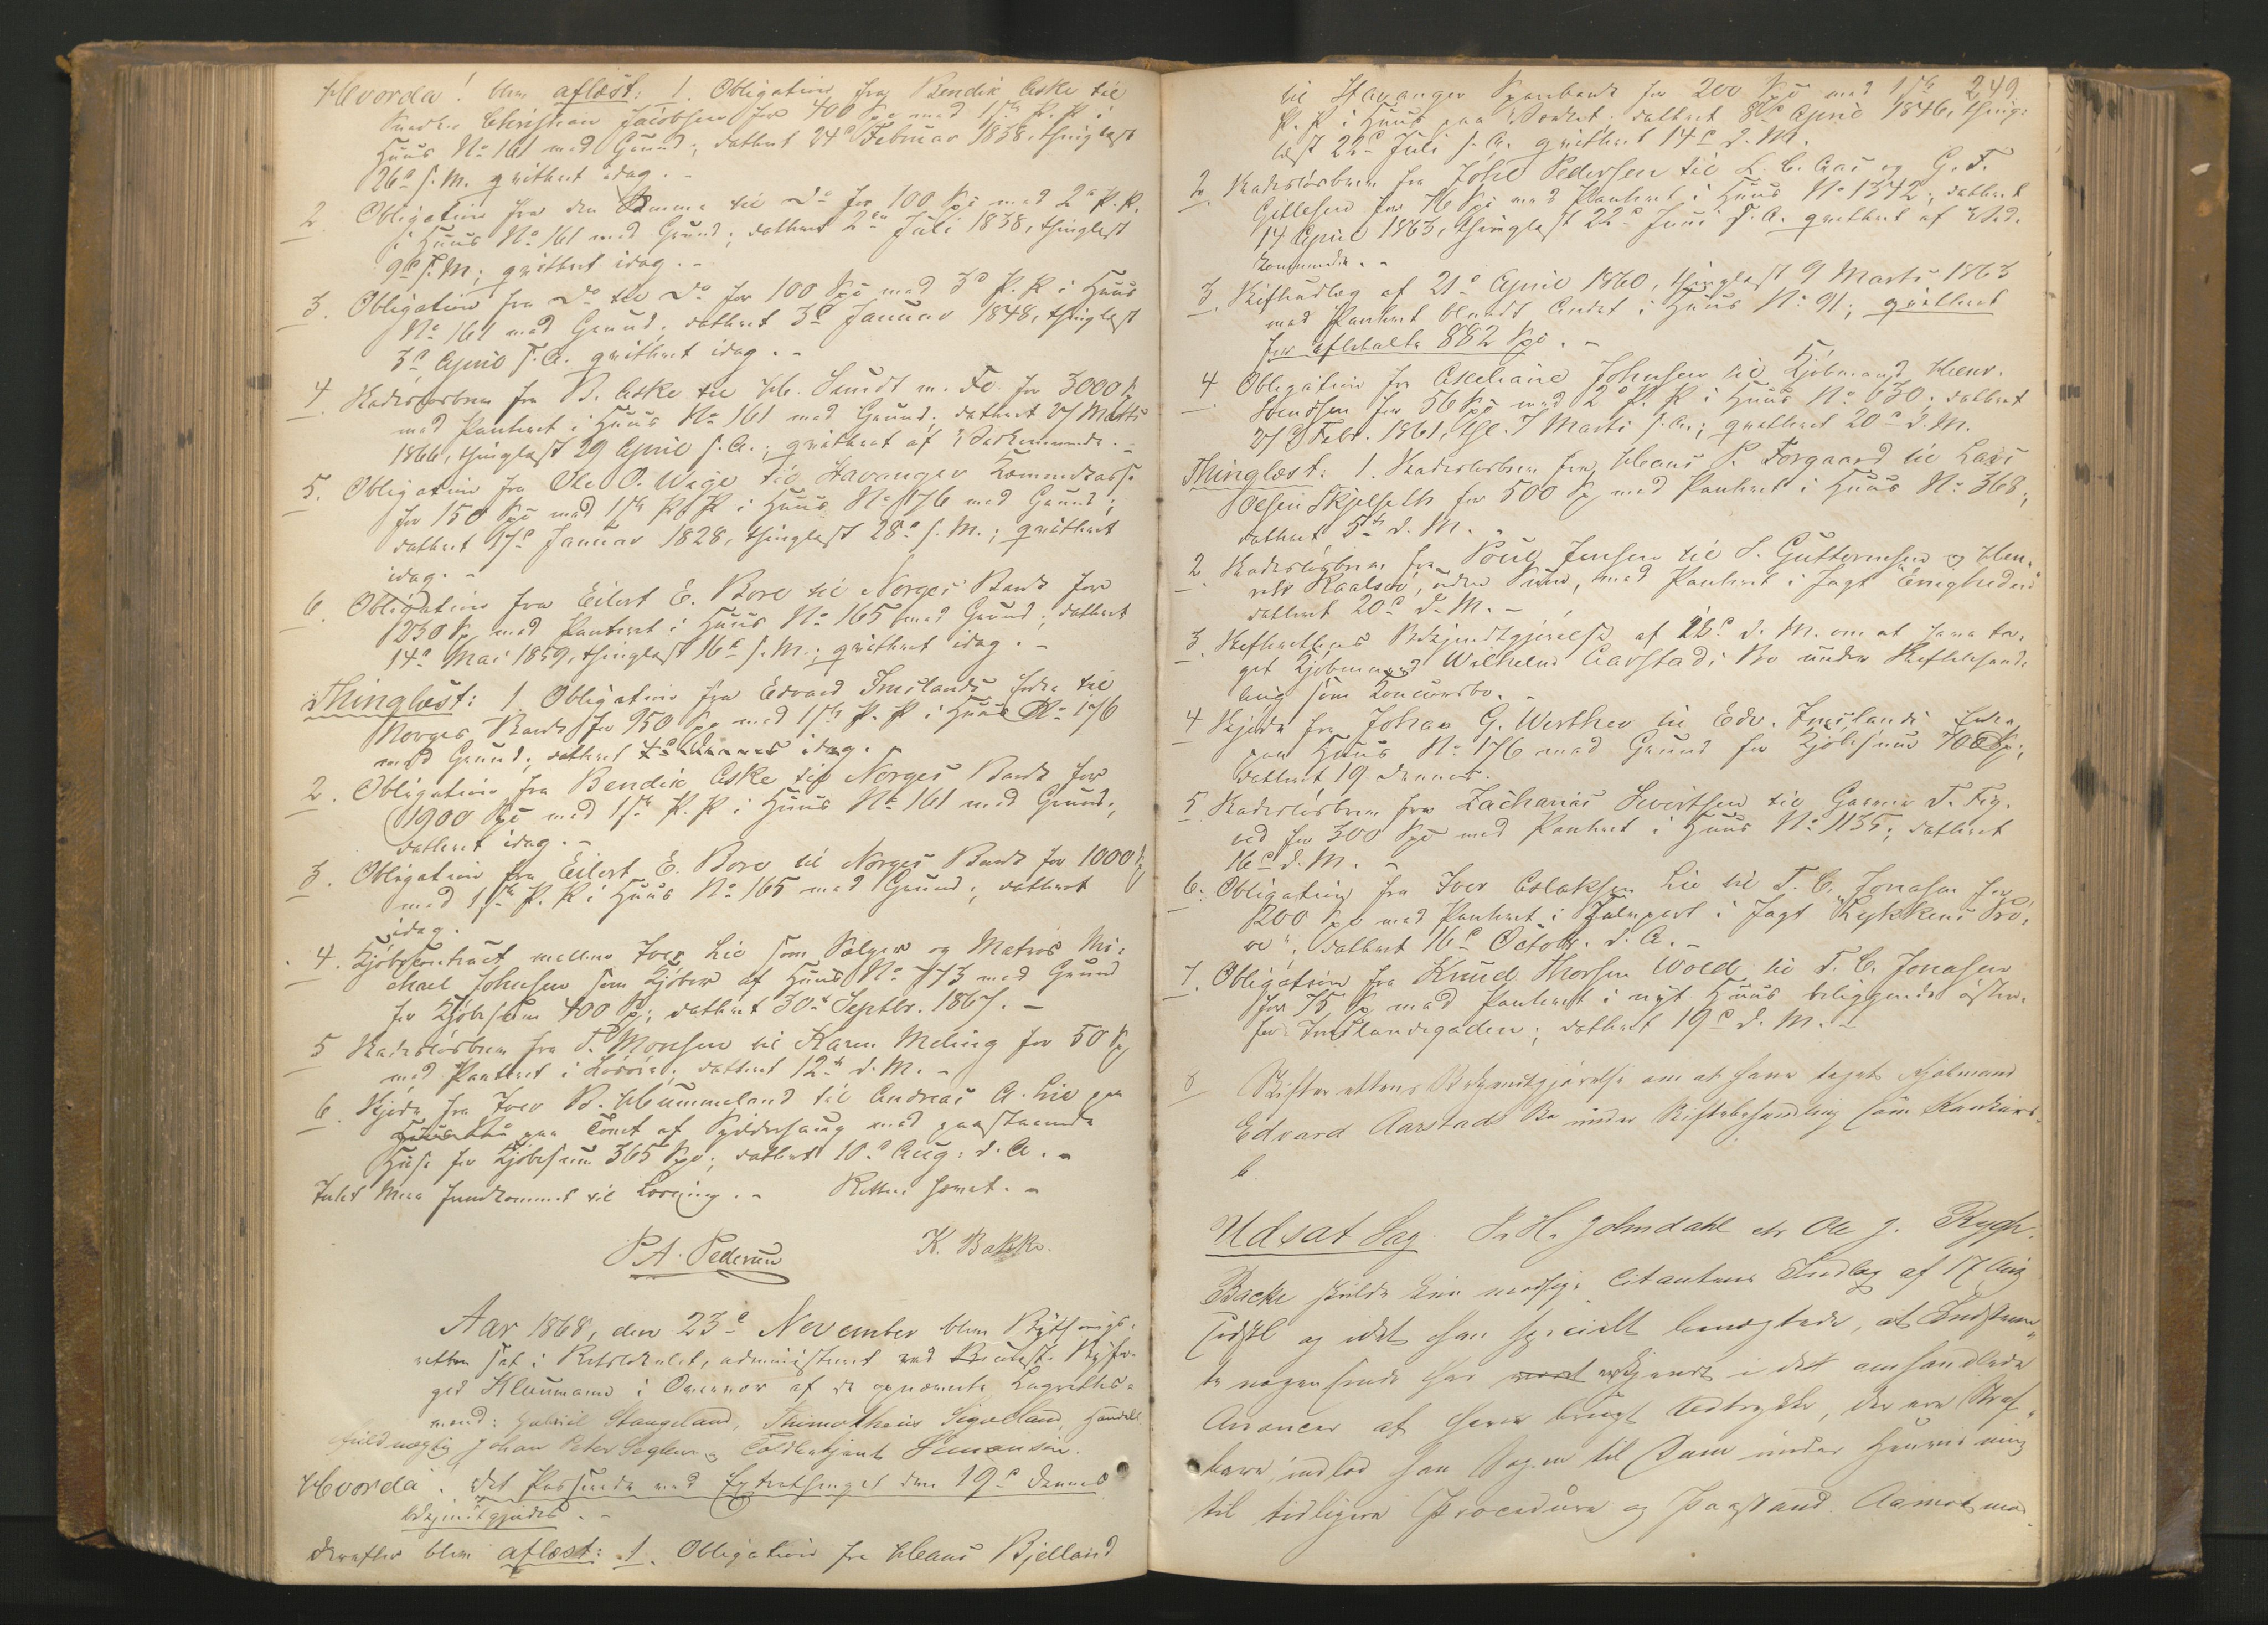 Hvorda! blev aflæst: 1. Obligation fra Bendix Aske til
Snedker Christian Jacobsen for 400 Spd med 1ste P. R. i
Huus No 161 med Grund; dateret 24de Februar 1838, thinglæst
26de s. M. qvitteret idag. -
2. Obligation fra den Samme til Do for 100 Spd med 2den P. R.
i Huus No 161 med Grund; dateret 2den Juli 1838, thinglæst
9de s. M; qvitteret idag. -
3. Obligation fra Do til Do for 100 Spd med 3de P. R. i Huus
No 161 med Grund; dateret 3de Januar 1848, thinglæst
3de April s. A. qvitteret idag. -
4. Skadesløsbrev fra B. Aske til H. Sundt m. Fl. for 3000 Sp
med Panteret i Huus No 161 med Grund; dateret 27 Marts
1866, thinglæst 29 April s. A.; qvitteret af Vedkommende. -
5. Obligation fra Ole O. Wige til Stavanger Kæmnerkasse
for 150 Spd med 1ste P. R. i Huus No 176 med Grund;
dateret 17de Januar 1828, thinglæst 28de s. M.; qvitteret
idag. -
6. Obligation fra Eilert E. Bore til Norges Bank for
1230 Sp med Panteret i Huus No 165 med Grund; dateret
14de Mai 1859, thinglæst 16de s. M.; qvitteret idag. -
Thinglæst: 1. Obligation fra Edvard Imslands Enke til
Norges Bank for 950 Spd med 1ste P. R. i Huus No 176
med Grund; dateret idag. -
2. Obligation fra Bendix Aske til Norges Bank for
1900 Spd med 1ste P. R. i Huus No 161 med Grund;
dateret idag. -
3. Obligation fra Eilert E. Bore til Norges Bank for 1000 Sp
med 1ste P. R. i Huus No 165 med Grund; dateret
idag.
4. Kjøbecontract mellem Iver Lie som Sælger og Matros Mi-
chael Johnsen som Kjøber af Huus No 773 med Grund
for Kjøbesum 400 Sp; dateret 30te Septbr. 1867. -
5 Skadesløsbrev fra P. Monsen til Karen Meling for 50 Sp
med Panteret i Løsøre; dateret 12te d. M. -
6. Skjøde fra Iver B. Hummeland til Andreas A. Lie paa
paa Tomt af Sydderhaug med paastaaende
Huse for Kjøbesum 365 Spd; dateret 10de Aug: d. A. -
Intet Mere fremkommet til Læsning. - Retten hævet. -
P A. Pedersen K. Bakke.
Aar 1868, den 23de November blev Bythings-
retten sat i Retslokalet, administreret ved Byfo-
ged Kloumann i Overvær af de opnævnte Lagrettes-
mænd: Gabriel Stangeland, Thimotheus Sigvelland, Handels
fuldmægtig Johan Peter Seglem og Toldbetjent Simonsen.
Hvorda: Det Passerede ved Extrathinget den 19de dennes
bekjendtgjordes. -
derefter blev aflæst: 1. Obligation fra Hans Bjelland
249
til Stavanger Sparebank for 200 Spd med 1ste
P. R. i Huus paa Værket; dateret 8de April 1846, thing-
læst 22de Juli s. A. qvitteret 14de d. M.
2. Skadesløsbrev fra Johs Pedersen til L. C. Aas og G. F.
Gitlesen for 76 Spd med Panteret i Huus No 1342; dateret
14 April 1863, thinglæst 22de Juni s. A. qvitteret af Ved-
kommende. -
3. Skifteudlæg af 21de April 1860, thinglæst 9 Marts 1863
med Panteret blandt Andet i Huus No 91; qvitteret
for afbetalte 882 Spd. -
4 Obligation fra Johnsen til Kjøbmand Henr.
Svendsen for 56 Spd med 2de P. R. i Huus No 630; dateret
27de Febr. 1861, thgl. 7 Marts s. A.; qvitteret 20de d. M.
Thinglæst: 1. Skadesløsbrev fra Hans P. Torgaard til Lars
Olsen Skjelseth for 500 Sp med Panteret i Huus No 368;
dateret 5te d. M. -
2. Skadesløsbrev fra Poul Jensen til S. Guttormsen og Hen-
rik Kaalsen, uden Sum, med Panteret i Jagt "Enigheden"
dateret 20de d. M. -
3. Skifterettens Bekjendtgjørelse af d. M. om at have ta-
get Kjøbmand Wilhelm Aarstads Bo under Skiftebehand-
ling som Concursbo. -
4 Skjøde fra Johan G. Werthe til Edv. Imslands Enke
paa Huus No 176 med Grund for Kjøbesum 700 Sp;
dateret 19 dennes.
5. Skadesløsbrev fra Zacharias Sivertsen til Garver T. Fig-
ved for 300 Spd med Panteret i Huus No 1135; dateret
16de d. M. -
6. Obligation fra Iver Aslaksen Lie til T. C. Jonasen for
1200 Spd med Panteret i Halvpart i Jagt "Lykkens Prø-
ve"; dateret 16de Octobr. d. A. -
7. Obligation fra Knud Thorsen Wold til T. C. Jonasen
for 75 Sp med Panteret i nyt Huus beliggende østen-
for Imslandsgaden; dateret 19de d. M. -
8 Skifterettens Bekjendtgjørelse om at have taget Kjøbmand
Edvard Aarstads Bo under Skiftebehandling som Konkurs
b.
Udsat Sag. P. H. Johndahl ctr Ole J. Rygh.
Backe skulde kun modsige Citantens Indlæg af 17 Aug
sidstl og idet han specielt benægtede, at Indstævn-
te nogensinde har erkjendt i det omhandlede
Avancer at have brugt Udtrykke, der ere Straf-
bare indlod han Sagen til Dom under Henvisning
til tidligere Procedure og Paastand. Aamot mod-